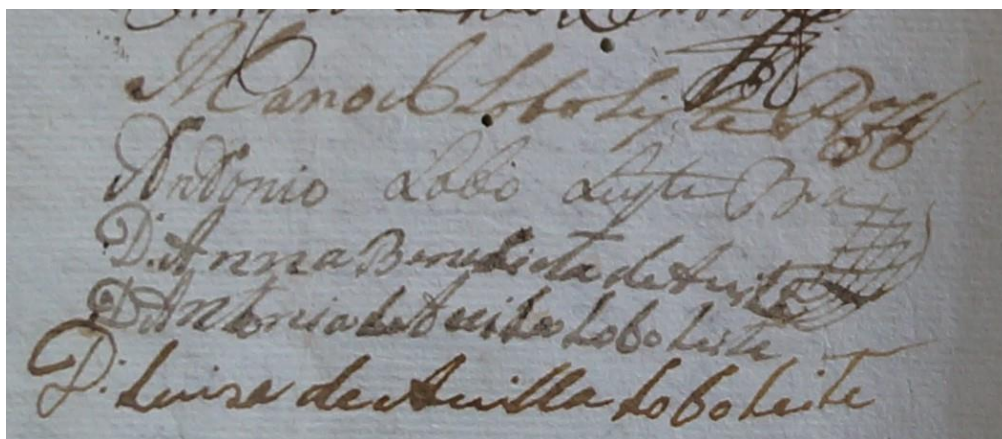 Manoel Lobo Leyte
Antonio Lobo Leyte
D. Anna Benedicta de Avila
D. Antonia de Avila Lobo Leite
D. Luiza de Avilla Lobo Leite